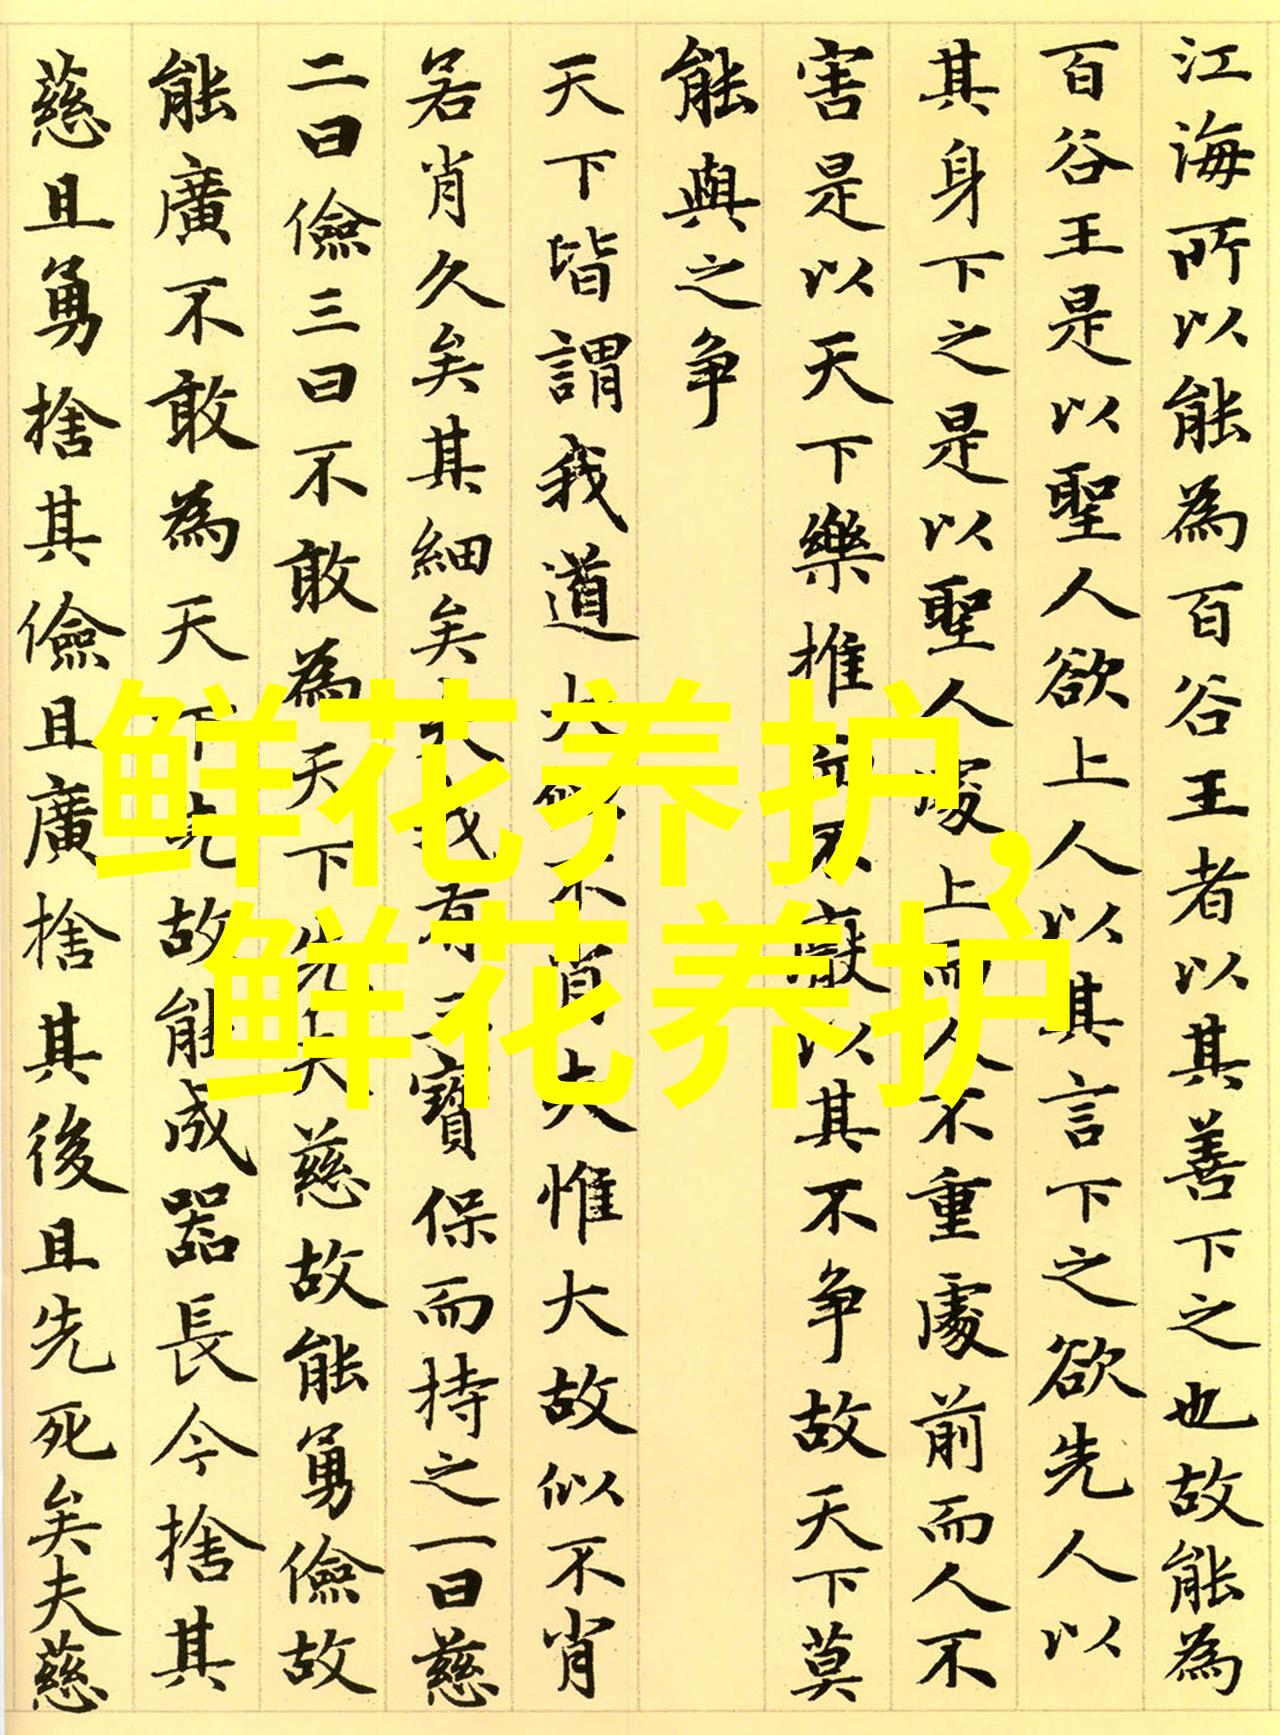 江海所以能為百谷王者以其善下之也故能為
百谷王是以聖人欲上人以其言下之欲先人以
其身下之是以聖人處上而人不重處前而人不
害是以天下樂推而不厭以其不争故天下莫
能與之争
天下皆謂我道大似不肖夫惟大故似不肖
若肖久矣其細矣夫我有三寶保而持之一曰慈
二曰儉三曰不敢為天下先夫慈故能勇儉故
能廣不敢為天下先故能成器長今捨其
慈且勇捨其儉且廣捨其後且先死矣夫慈
鲜花养护,
鲜花养护